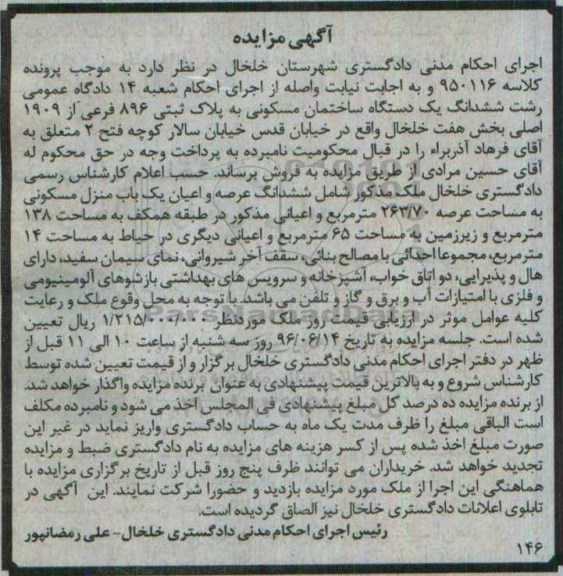 آگهی مزایده
اجرای احکام مدنی دادگستری شهرستان خلخال در نظر دارد به موجب پرونده
کلاسه ۹۵۰۱۱۶ و به اجابت نیابت واصله از اجرای احکام شعبه ۱۴ دادگاه عمومی
رشت ششدانگ یک دستگاه ساختمان مسکونی به پلاک ثبتی ۸۹۶ فرعی از ۱۹۰۹
اصلی بخش هفت خلخال واقع در خیابان قدس خیابان سالار کوچه فتح ۲ متعلق به
آقای فرهاد آذربراء را در قبال محکومیت نامبرده به پرداخت وجه در حق محکوم له
آقای حسین مرادی از طریق مزایده به فروش برساند. حسب اعلام کارشناس رسمی
دادگستری خلخال ملک مذکور شامل ششدانگ عرصه و اعیان یک باب منزل مسکونی
به مساحت عرصه ۲۶۳/۷۰ مترمربع و اعیانی مذکور در طبقه همکف به مساحت ۱۳۸
مترمربع و زیرزمین به مساحت ۶۵ مترمربع و اعیانی دیگری در حیاط به مساحت ۱۴
مترمربع، مجموعا احداثی با مصالح بنائی، سقف آخر شیروانی، نمای سیمان سفید، دارای
هال و پذیرایی، دو اتاق خواب، آشپزخانه و سرویس های بهداشتی بازشوهای آلومینیومی
و فلزی با امتیازات آب و برق و گاز و تلفن می باشد. با توجه به محل وقوع ملک و رعایت
کلیه عوامل موثر در ارزیابی قیمت روز ملک موردنظر ۱/۲۱۵/۰۰۰/۰۰۰ ریال تعیین
شده است. جلسه مزایده به تاریخ ۹۶/۰۶/۱۴ روز سه شنبه از ساعت ۱۰ الی ۱۱ قبل از
ظهر در دفتر اجرای احکام مدنی دادگستری خلخال برگزار و از قیمت تعیین شده توسط
کارشناس شروع و به بالاترین قیمت پیشنهادی به عنوان برنده مزایده واگذار خواهد شد.
از برنده مزایده ده درصد کل مبلغ پیشنهادی فی المجلس اخذ می شود و نامبرده مکلف
است الباقی مبلغ را ظرف مدت یک ماه به حساب دادگستری واریز نماید در غیر این
صورت مبلغ اخذ شده پس از کسر هزینه های مزایده به نام دادگستری ضبط و مزایده
تجدید خواهد شد. خریداران می توانند ظرف پنج روز قبل از تاریخ برگزاری مزایده با
هماهنگی این اجرا از ملک مورد مزایده بازدید و حضورا شرکت نمایند. این آگهی در
تابلوی اعلانات دادگستری خلخال نیز الصاق گردیده است.
رئیس اجرای احکام مدنی دادگستری خلخال- علی رمضانپور
۱۴۶